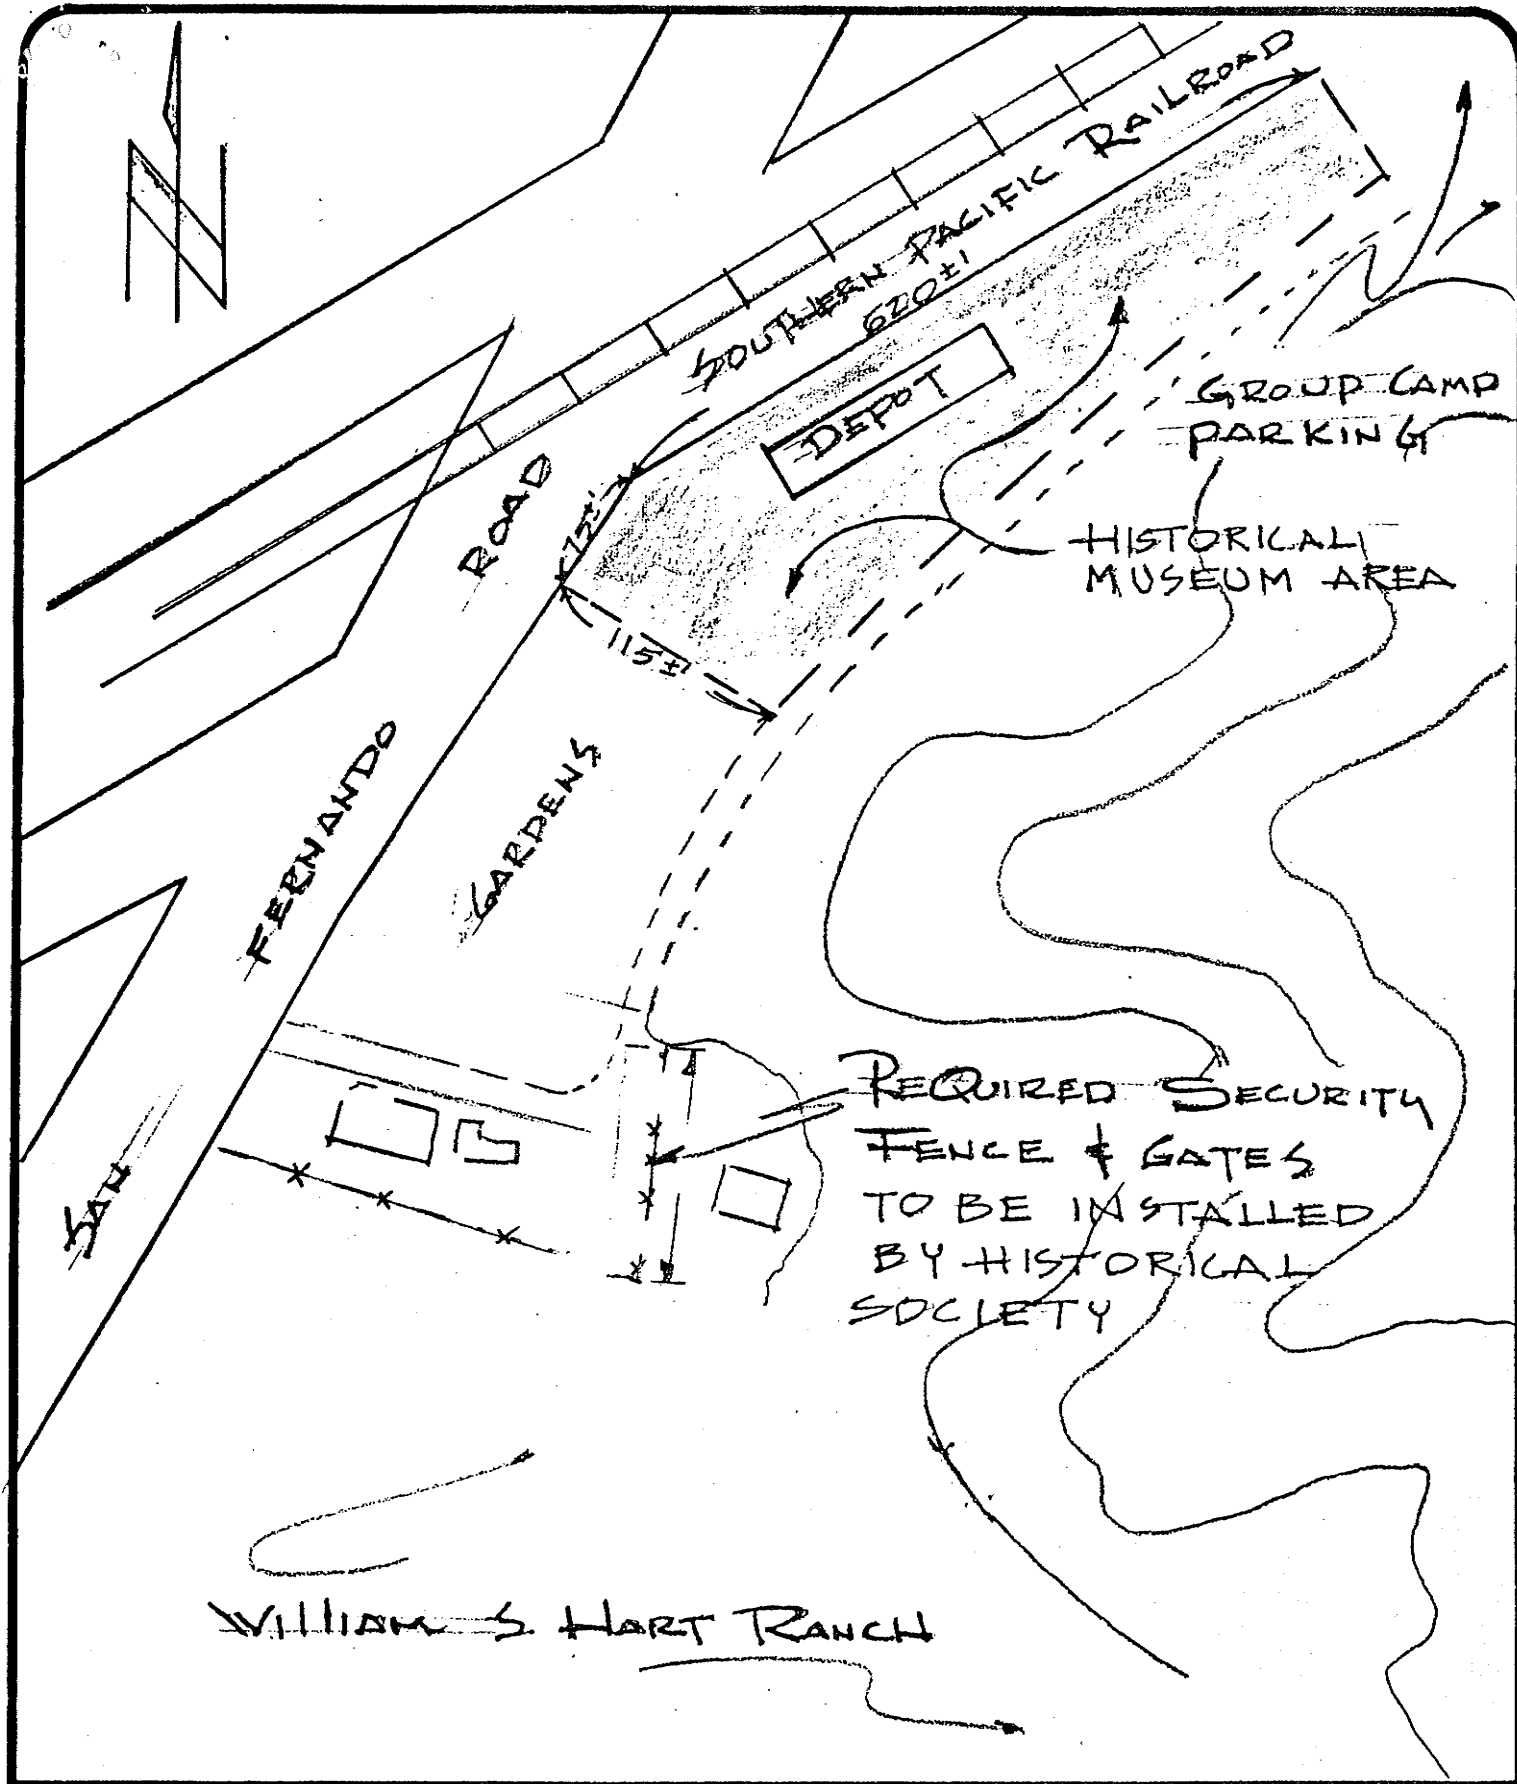 N
SOUTHERN PACIFIC RAILROAD
620±'
DEPOT
GROUP CAMP
PARKING
75±'
HISTORICAL
MUSEUM AREA
115±
SAN FERNANDO ROAD
GARDENS
REQUIRED SECURITY
FENCE & GATES
TO BE INSTALLED
BY HISTORICAL
SOCIETY
WILLIAM S. HART RANCH